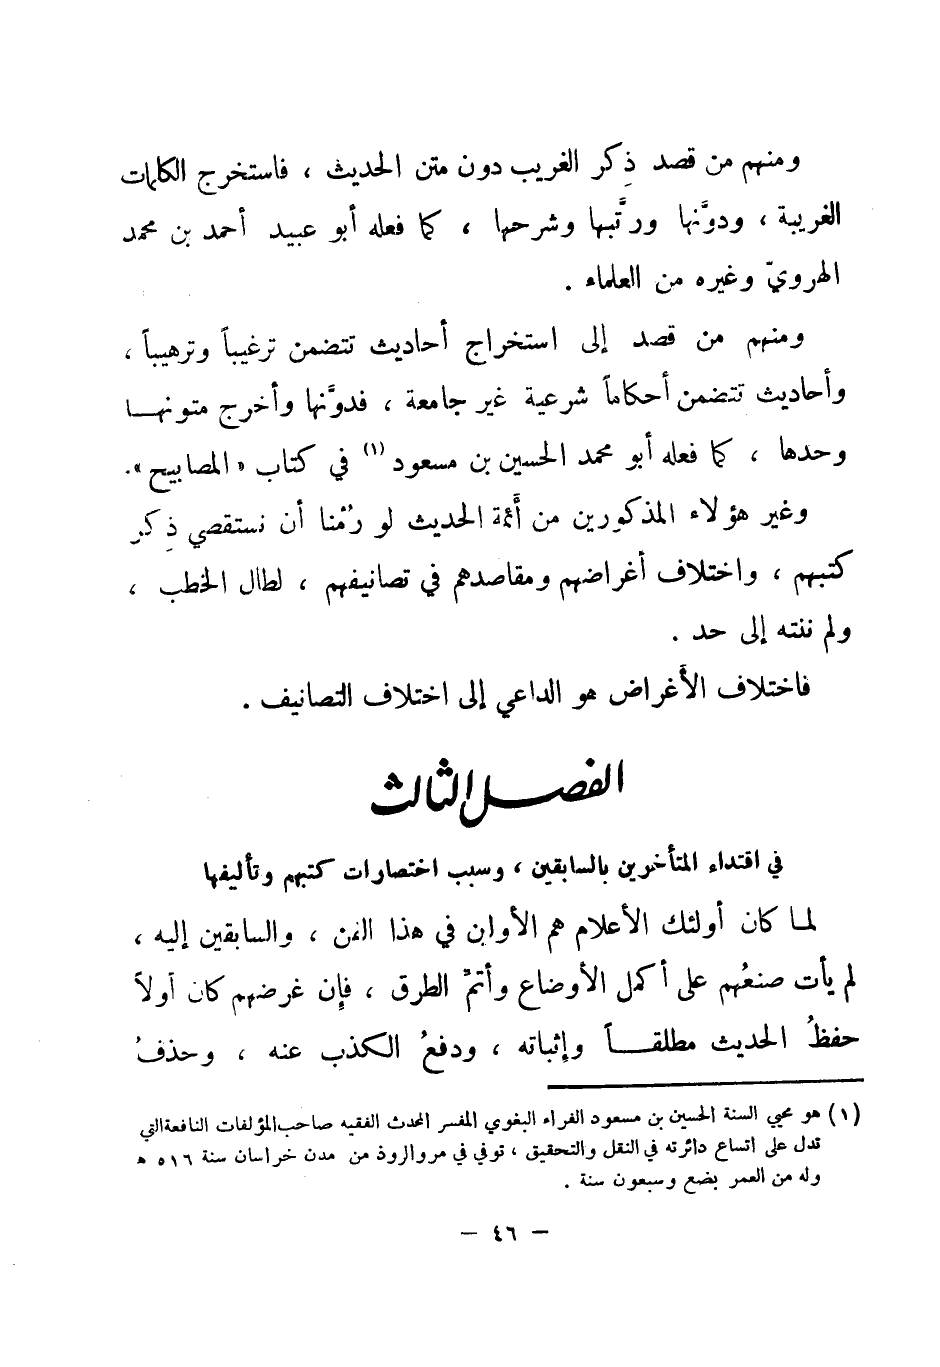 ومنهم من قصد ذِكر الغريب دون متن الحديث ، فاستخرج الكلمات
الغريبة ، ودوَّنها ورتَّبها وشرحها ، كما فعله أبو عبيد أحمد بن محمد
الهرويّ وغيره من العلماء .
ومنهم من قصد إلى استخراج أحاديث تتضمن ترغيباً وترهيباً ،
وأحاديث تتضمن أحكاماً شرعية غير جامعة ، فدوَّنها وأخرج متونهـــا
وحدها ، كما فعله أبو محمد الحسين بن مسعود (١) في كتاب « المصابيح ».
وغير هؤلاء المذكورين من أئمة الحديث لو رُمْنا أن نستقصي ذِكر
كتبهم ، واختلاف أغراضهم ومقاصدهم في تصانيفهم ، لطال الخطب ،
ولم ننته إلى حد .
فاختلاف الأغراض هو الداعي إلى اختلاف التصانيف .
الفصل الثالث
في اقتداء المتأخرين بالسابقين ، وسبب اختصارات كتبهم وتأليفها
لمـا كان أولئك الأعلام هم الأولين في هذا الفن ، والسابقين إليه ،
لم يأت صنعُهم على أكمل الأوضاع وأتمِّ الطرق ، فإن غرضهم كان أولاً
حفظُ الحديث مطلقـــاً وإثباته ، ودفعُ الكذب عنه ، وحذفُ
(١) هو محيي السنة الحسين بن مسعود الفراء البغوي المفسر المحدث الفقيه صاحب المؤلفات النافعة التي
تدل على اتساع دائرته في النقل والتحقيق ، توفي في مروالروذ من مدن خراسان سنة ٥١٦ ه
وله من العمر بضع وسبعون سنة .
– ٤٦ –